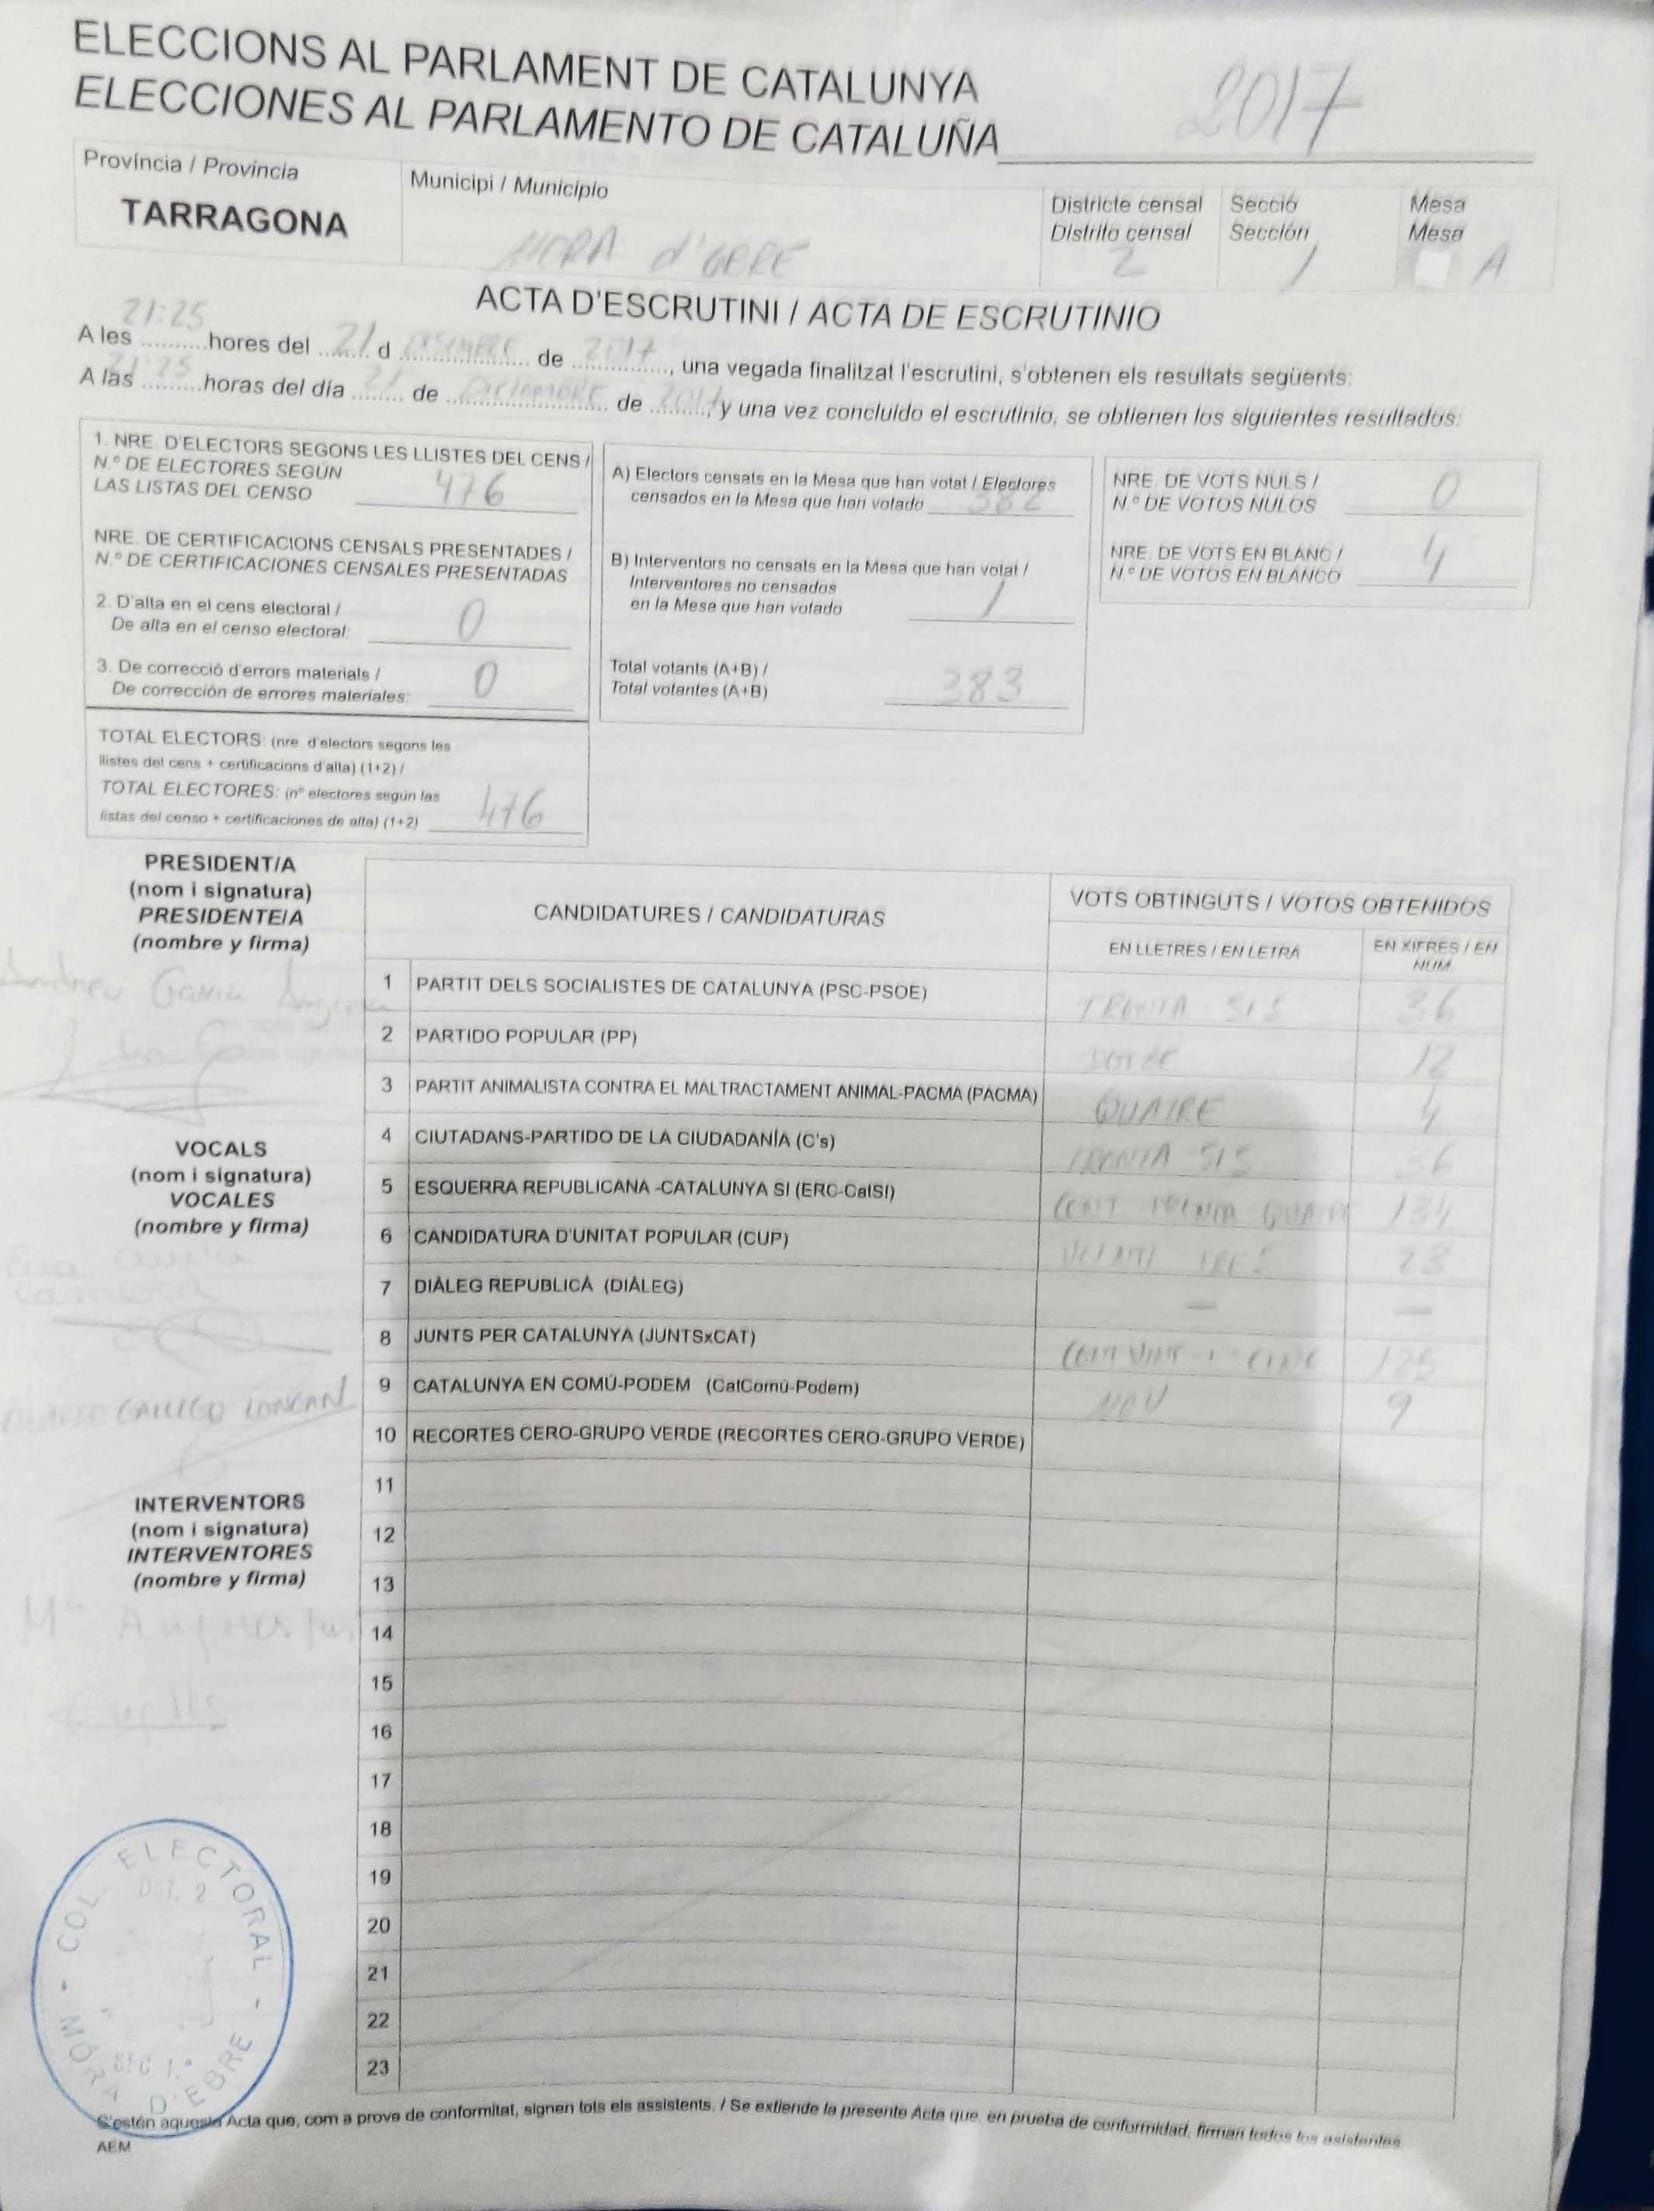 ELECCIONS AL PARLAMENT DE CATALUNYA
ELECCIONES AL PARLAMENTO DE CATALUÑA 2017
Província / Provincia
TARRAGONA
Municipi / Municipio
MORA d'EBRE
Districte censal
Distrito censal
2
Secció
Sección
1
Mesa
Mesa
A
ACTA D'ESCRUTINI / ACTA DE ESCRUTINIO
A les 21:25 hores del 21 d DESEMBRE de 2017, una vegada finalitzat l'escrutini, s'obtenen els resultats següents:
A las 21:25 horas del día 21 de DICIEMBRE de 2017, y una vez concluido el escrutinio, se obtienen los siguientes resultados:
1. NRE. D'ELECTORS SEGONS LES LLISTES DEL CENS /
N.º DE ELECTORES SEGÚN
LAS LISTAS DEL CENSO 476
NRE. DE CERTIFICACIONS CENSALS PRESENTADES /
N.º DE CERTIFICACIONES CENSALES PRESENTADAS
2. D'alta en el cens electoral /
De alta en el censo electoral: 0
3. De correcció d'errors materials /
De corrección de errores materiales: 0
TOTAL ELECTORS: (nre. d'electors segons les
llistes del cens + certificacions d'alta) (1+2) /
TOTAL ELECTORES: (nº electores según las
listas del censo + certificaciones de alta) (1+2) 476
A) Electors censats en la Mesa que han votat / Electores
censados en la Mesa que han votado 382
B) Interventors no censats en la Mesa que han votat /
Interventores no censados
en la Mesa que han votado 1
Total votants (A+B) /
Total votantes (A+B) 383
NRE. DE VOTS NULS /
N.º DE VOTOS NULOS 0
NRE. DE VOTS EN BLANC /
N.º DE VOTOS EN BLANCO 4
PRESIDENT/A
(nom i signatura)
PRESIDENTE/A
(nombre y firma)
Andreu Garcia
VOCALS
(nom i signatura)
VOCALES
(nombre y firma)
GALLEGO LONGAN
INTERVENTORS
(nom i signatura)
INTERVENTORES
(nombre y firma)
Mª
CANDIDATURES / CANDIDATURAS
VOTS OBTINGUTS / VOTOS OBTENIDOS
EN LLETRES / EN LETRA
EN XIFRES / EN
NUM.
1 PARTIT DELS SOCIALISTES DE CATALUNYA (PSC-PSOE) TRENTA-SIS 36
2 PARTIDO POPULAR (PP) DOTZE 12
3 PARTIT ANIMALISTA CONTRA EL MALTRACTAMENT ANIMAL-PACMA (PACMA) QUATRE 4
4 CIUTADANS-PARTIDO DE LA CIUDADANÍA (C's) TRENTA SIS 36
5 ESQUERRA REPUBLICANA -CATALUNYA SI (ERC-CatSI) CENT TRENTA QUATRE 134
6 CANDIDATURA D'UNITAT POPULAR (CUP) VEINTI TRES 23
7 DIÀLEG REPUBLICÀ (DIÀLEG) — —
8 JUNTS PER CATALUNYA (JUNTSxCAT) CENT VINT-I-CINC 125
9 CATALUNYA EN COMÚ-PODEM (CatComú-Podem) NOU 9
10 RECORTES CERO-GRUPO VERDE (RECORTES CERO-GRUPO VERDE)
11
12
13
14
15
16
17
18
19
20
21
22
23
COL. ELECTORAL - MÓRA D'EBRE -
DCT. 2
SEC 1.ª
S'estén aquesta Acta que, com a prova de conformitat, signen tots els assistents. / Se extiende la presente Acta que, en prueba de conformidad, firman todos los asistentes.
AEM